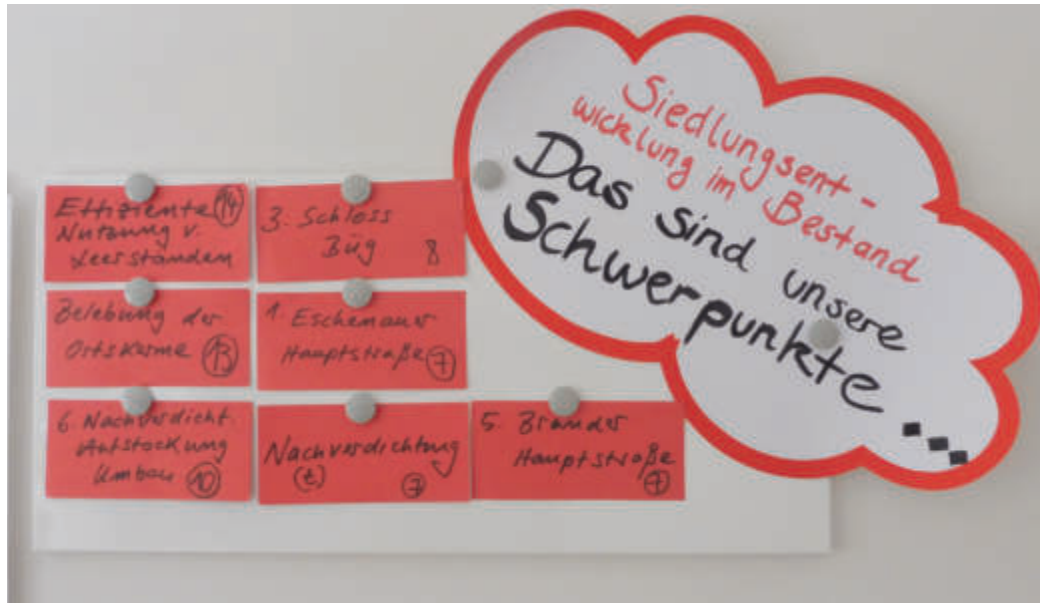 Siedlungsent-
wicklung im Bestand
Das sind unsere
Schwerpunkte ...
Effiziente 14
Nutzung v.
Leerständen
3. Schloss
Büg 8
Belebung der
Ortskerne 13
1. Eschenauer
Hauptstraße 7
6. Nachverdicht.
Aufstockung
Umbau 10
Nachverdichtung
(t) 7
5. Brander
Hauptstraße
7